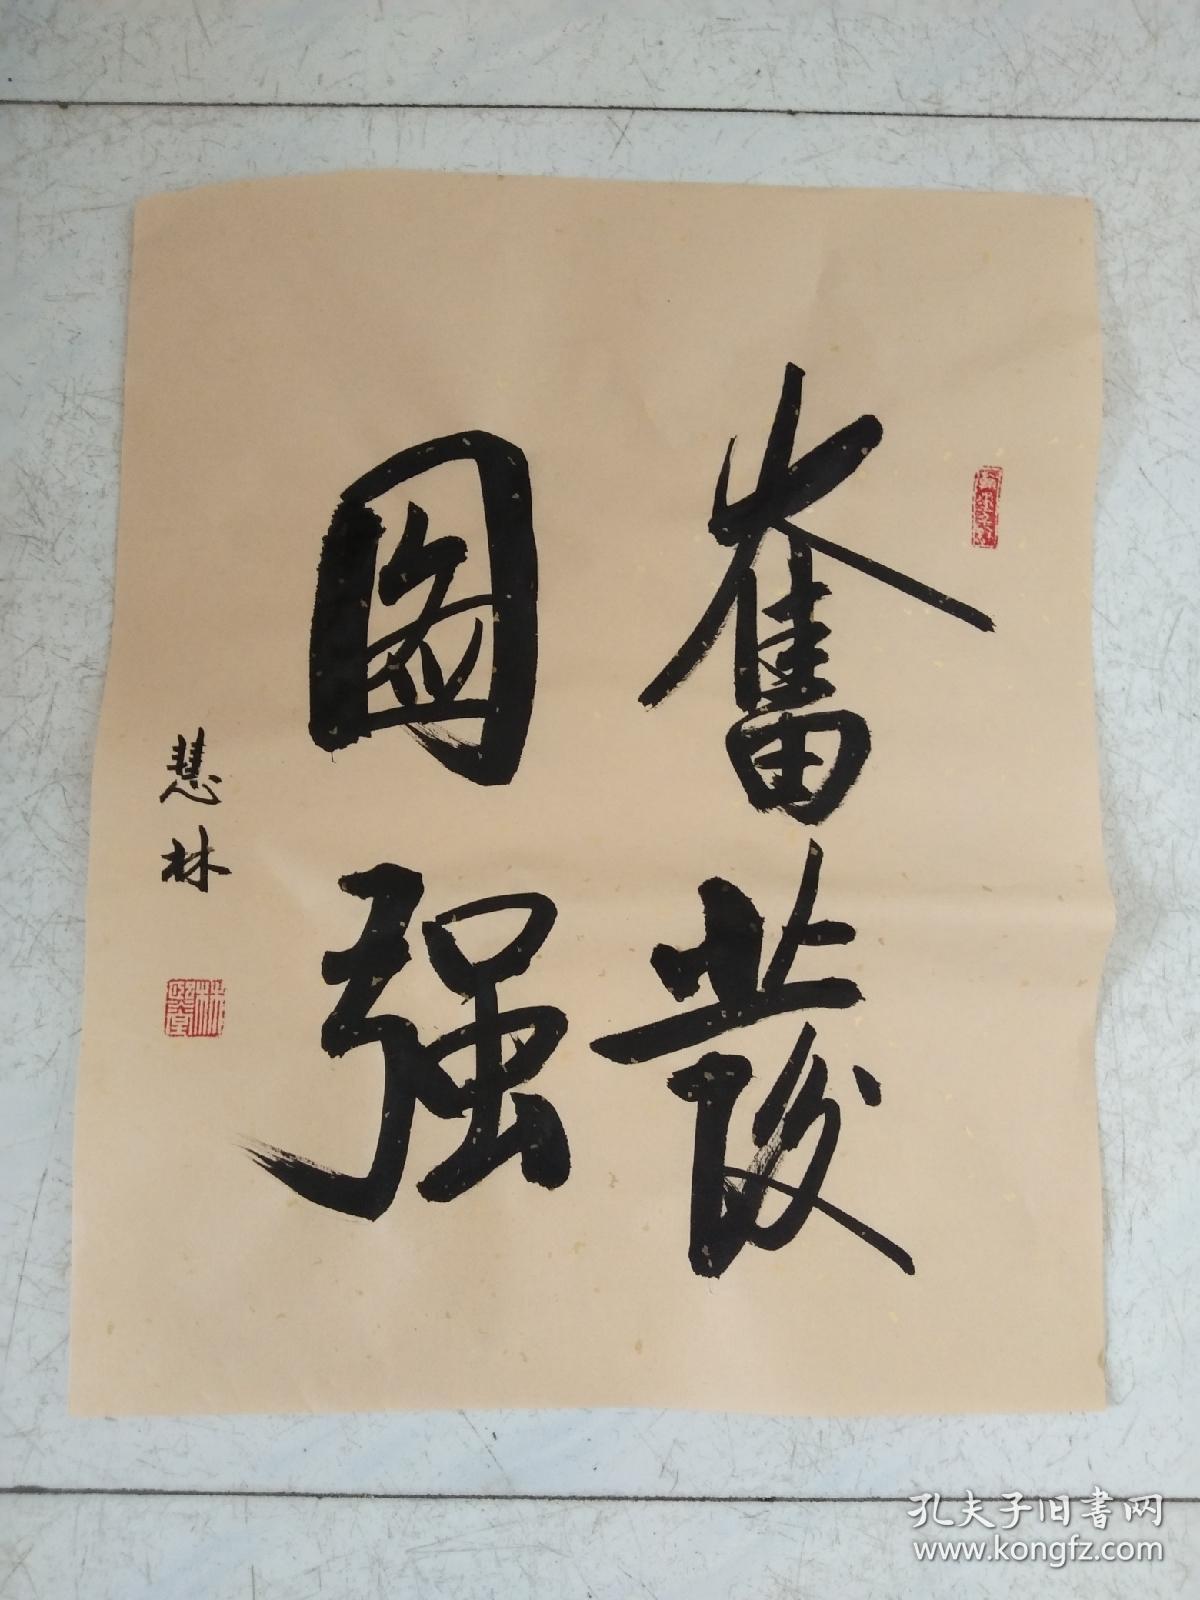 奮發
图强
慧林
孔夫子旧書网
www.kongfz.com